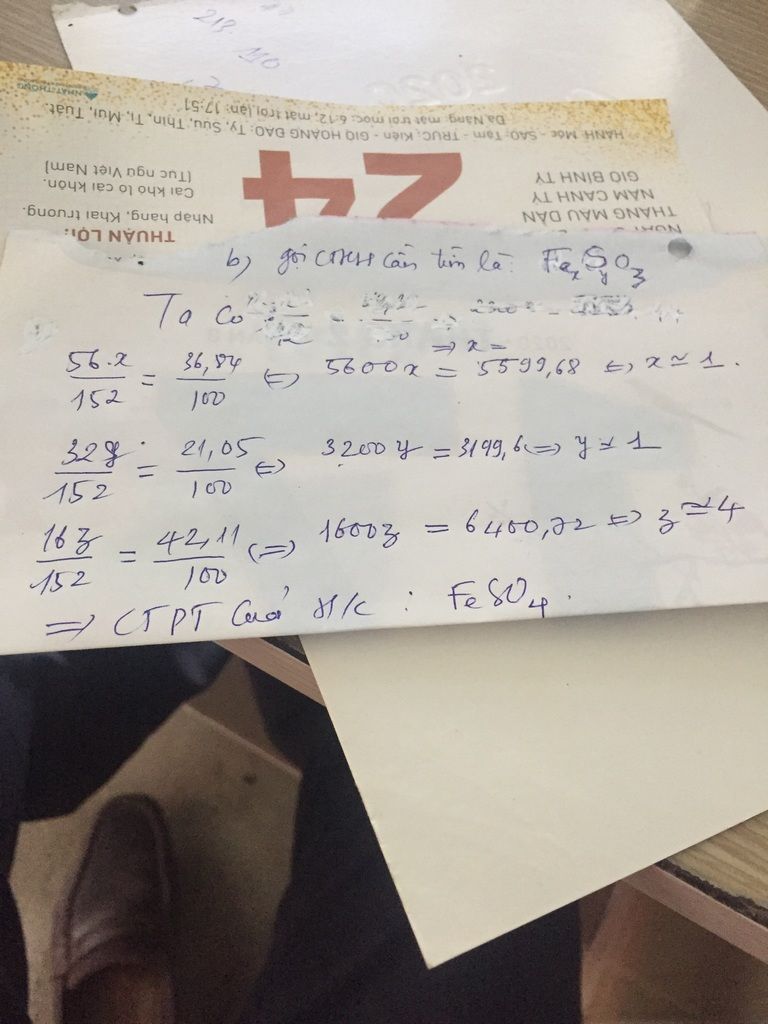 218
110
HÀNH: Mộc - SAO: Tâm - TRỰC: Kiến - GIỜ HOÀNG ĐẠO: Tý, Sửu, Thìn, Tị, Mùi, Tuất.
Đà Nẵng, mặt trời mọc: 6:12, mặt trời lặn: 17:51
NHẤT THỐNG
24
GIỜ BÍNH TÝ
NĂM CANH TÝ
THÁNG MẬU DẦN
Cái khó ló cái khôn.
[Tục ngữ Việt Nam]
THUẬN LỢI:
Nhập hàng, Khai trương.
b) gọi CTHH cần tìm là: FexSyOz
Ta có
⇒ x =
56.x/152 = 36,84/100 ⇔ 5600x = 5599,68 ⇔ x ≃ 1.
32y/152 = 21,05/100 ⇔ 3200y = 3199,6 ⇔ y ≃ 1
16z/152 = 42,11/100 ⇔ 1600z = 6400,72 ⇔ z ≃ 4
⇒ CTPT của H/c : FeSO4.